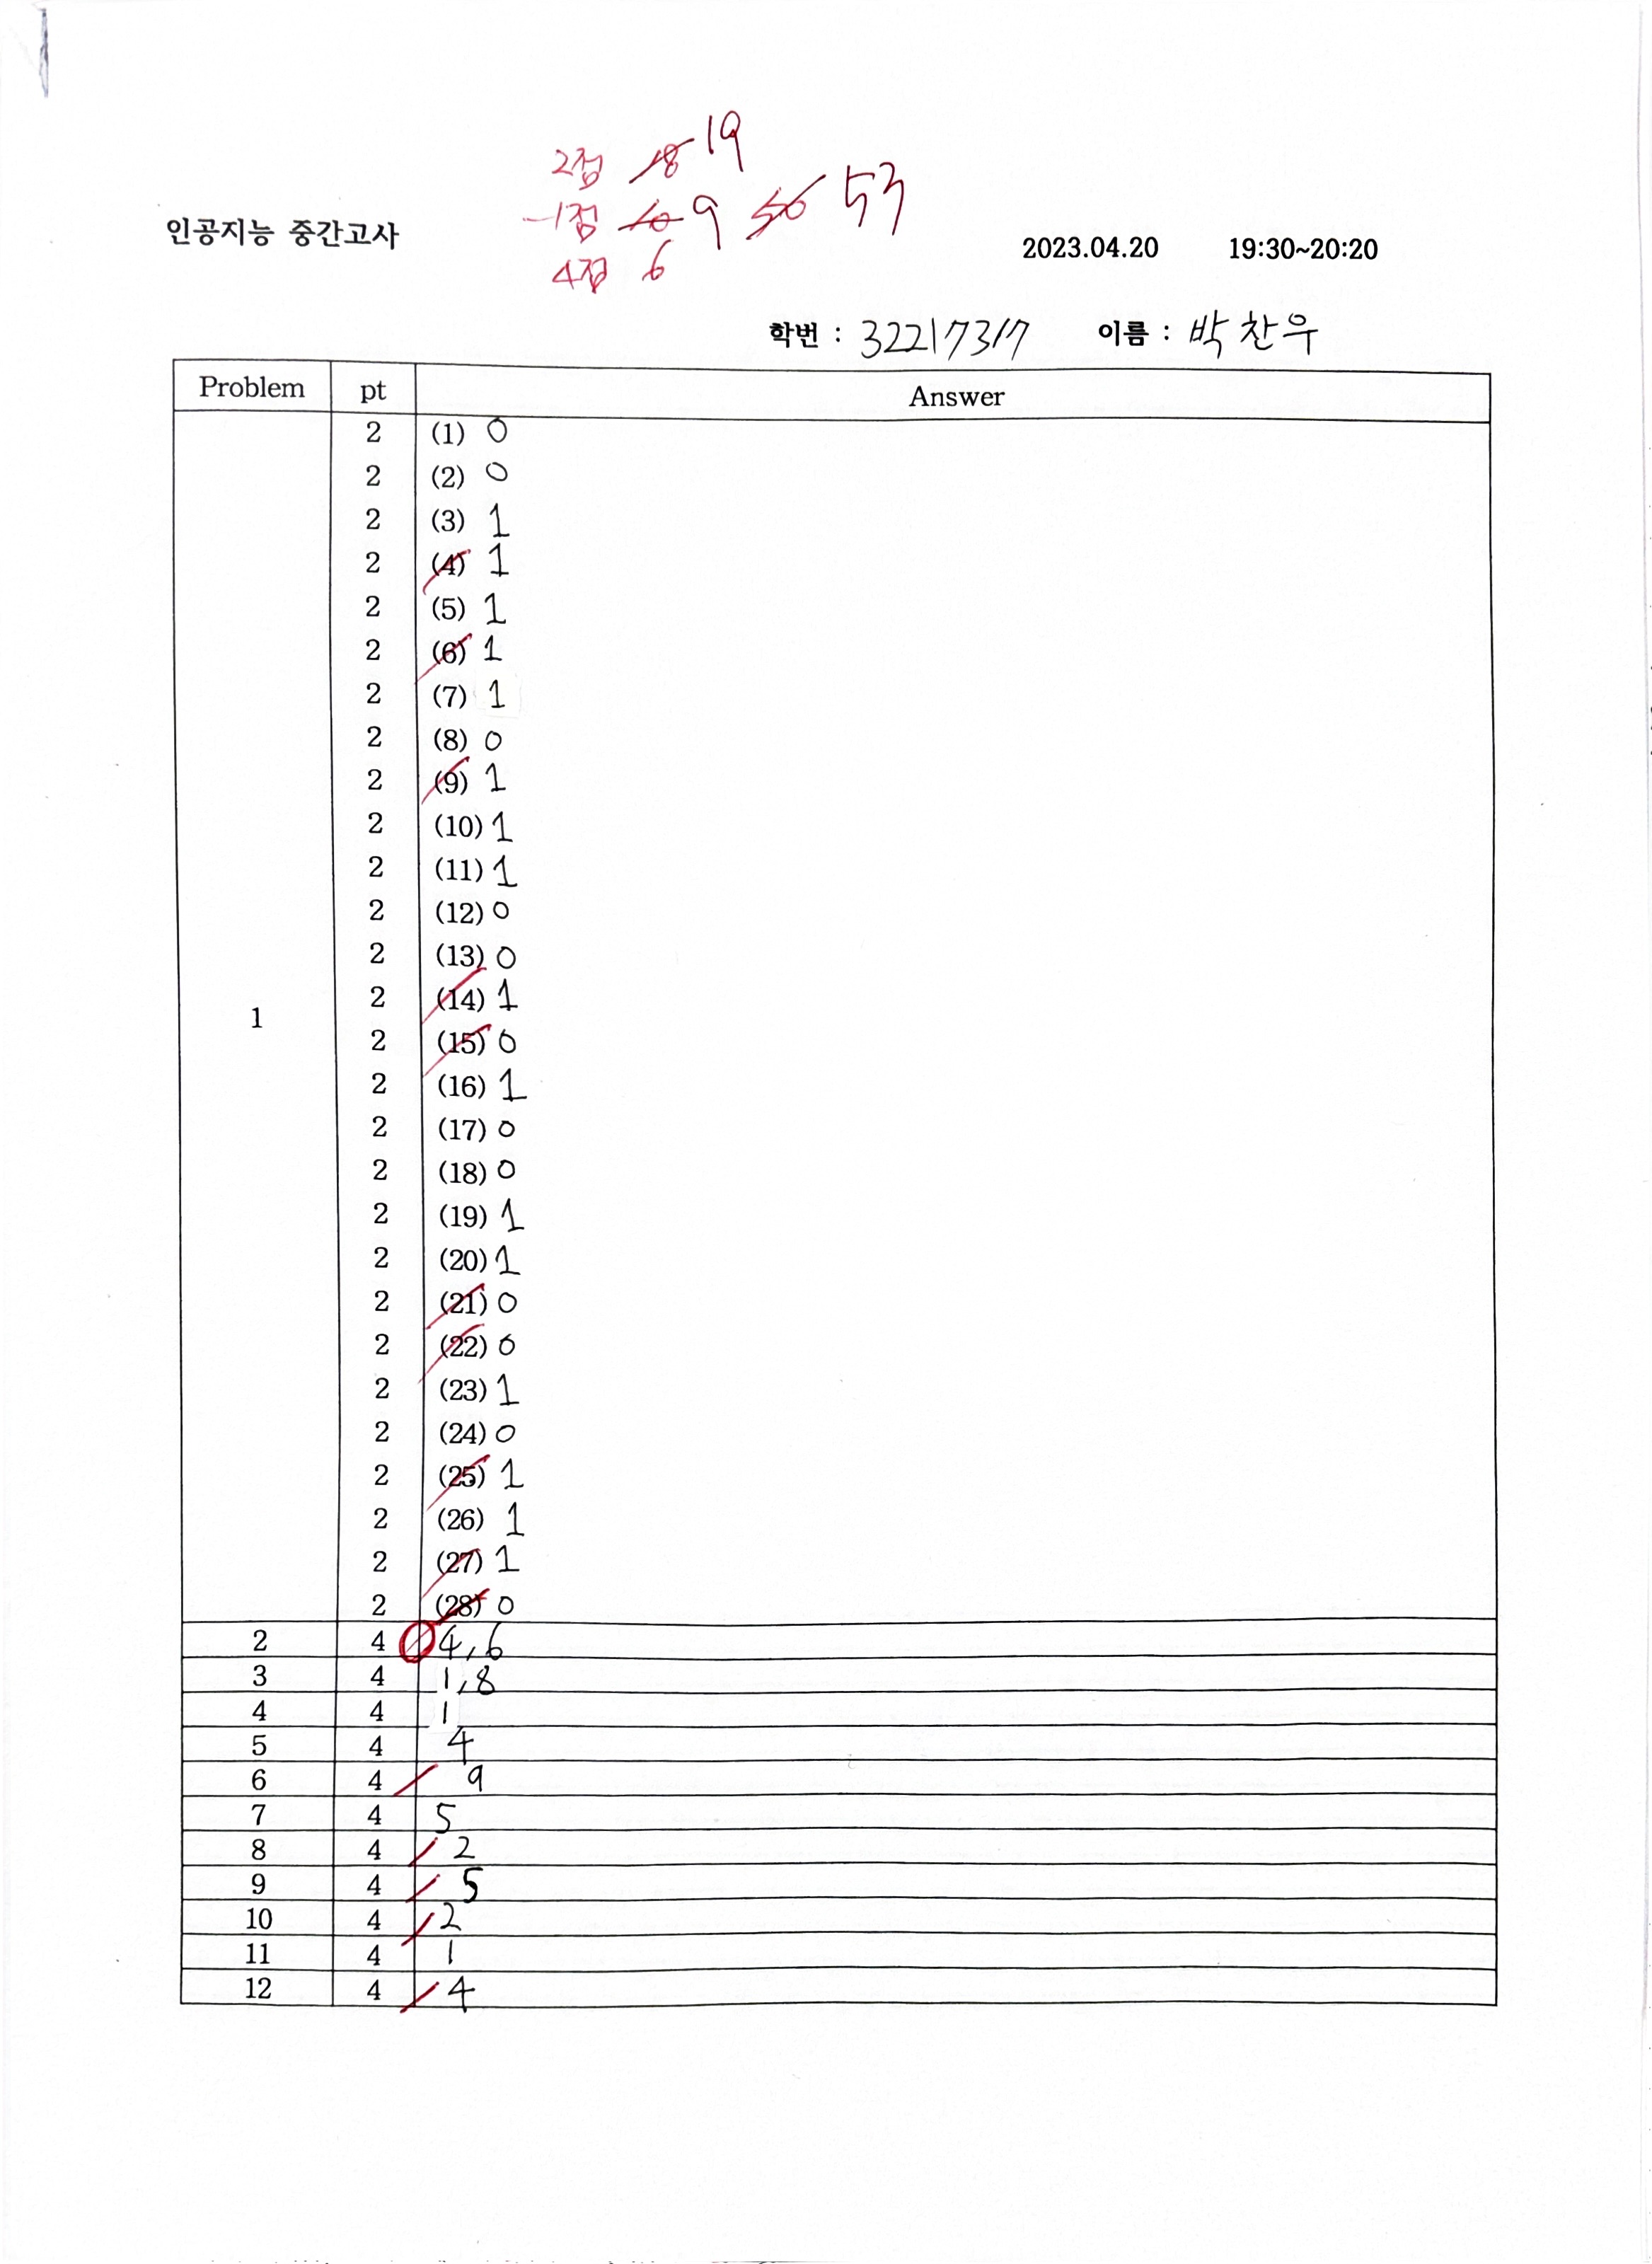 2점 18 19
인공지능 중간고사 -1점 10 9 50 53
4점 6
2023.04.20 19:30~20:20
학번 : 32217317 이름 : 박찬우
Problem pt Answer
2 (1) 0
2 (2) 0
2 (3) 1
2 (4) 1
2 (5) 1
2 (6) 1
2 (7) 1
2 (8) 0
2 (9) 1
2 (10) 1
2 (11) 1
2 (12) 0
2 (13) 0
2 (14) 1
1
2 (15) 0
2 (16) 1
2 (17) 0
2 (18) 0
2 (19) 1
2 (20) 1
2 (21) 0
2 (22) 0
2 (23) 1
2 (24) 0
2 (25) 1
2 (26) 1
2 (27) 1
2 (28) 0
2 4 4,6
3 4 1,8
4 4 1
5 4 4
6 4 9
7 4 5
8 4 2
9 4 5
10 4 2
11 4 1
12 4 4